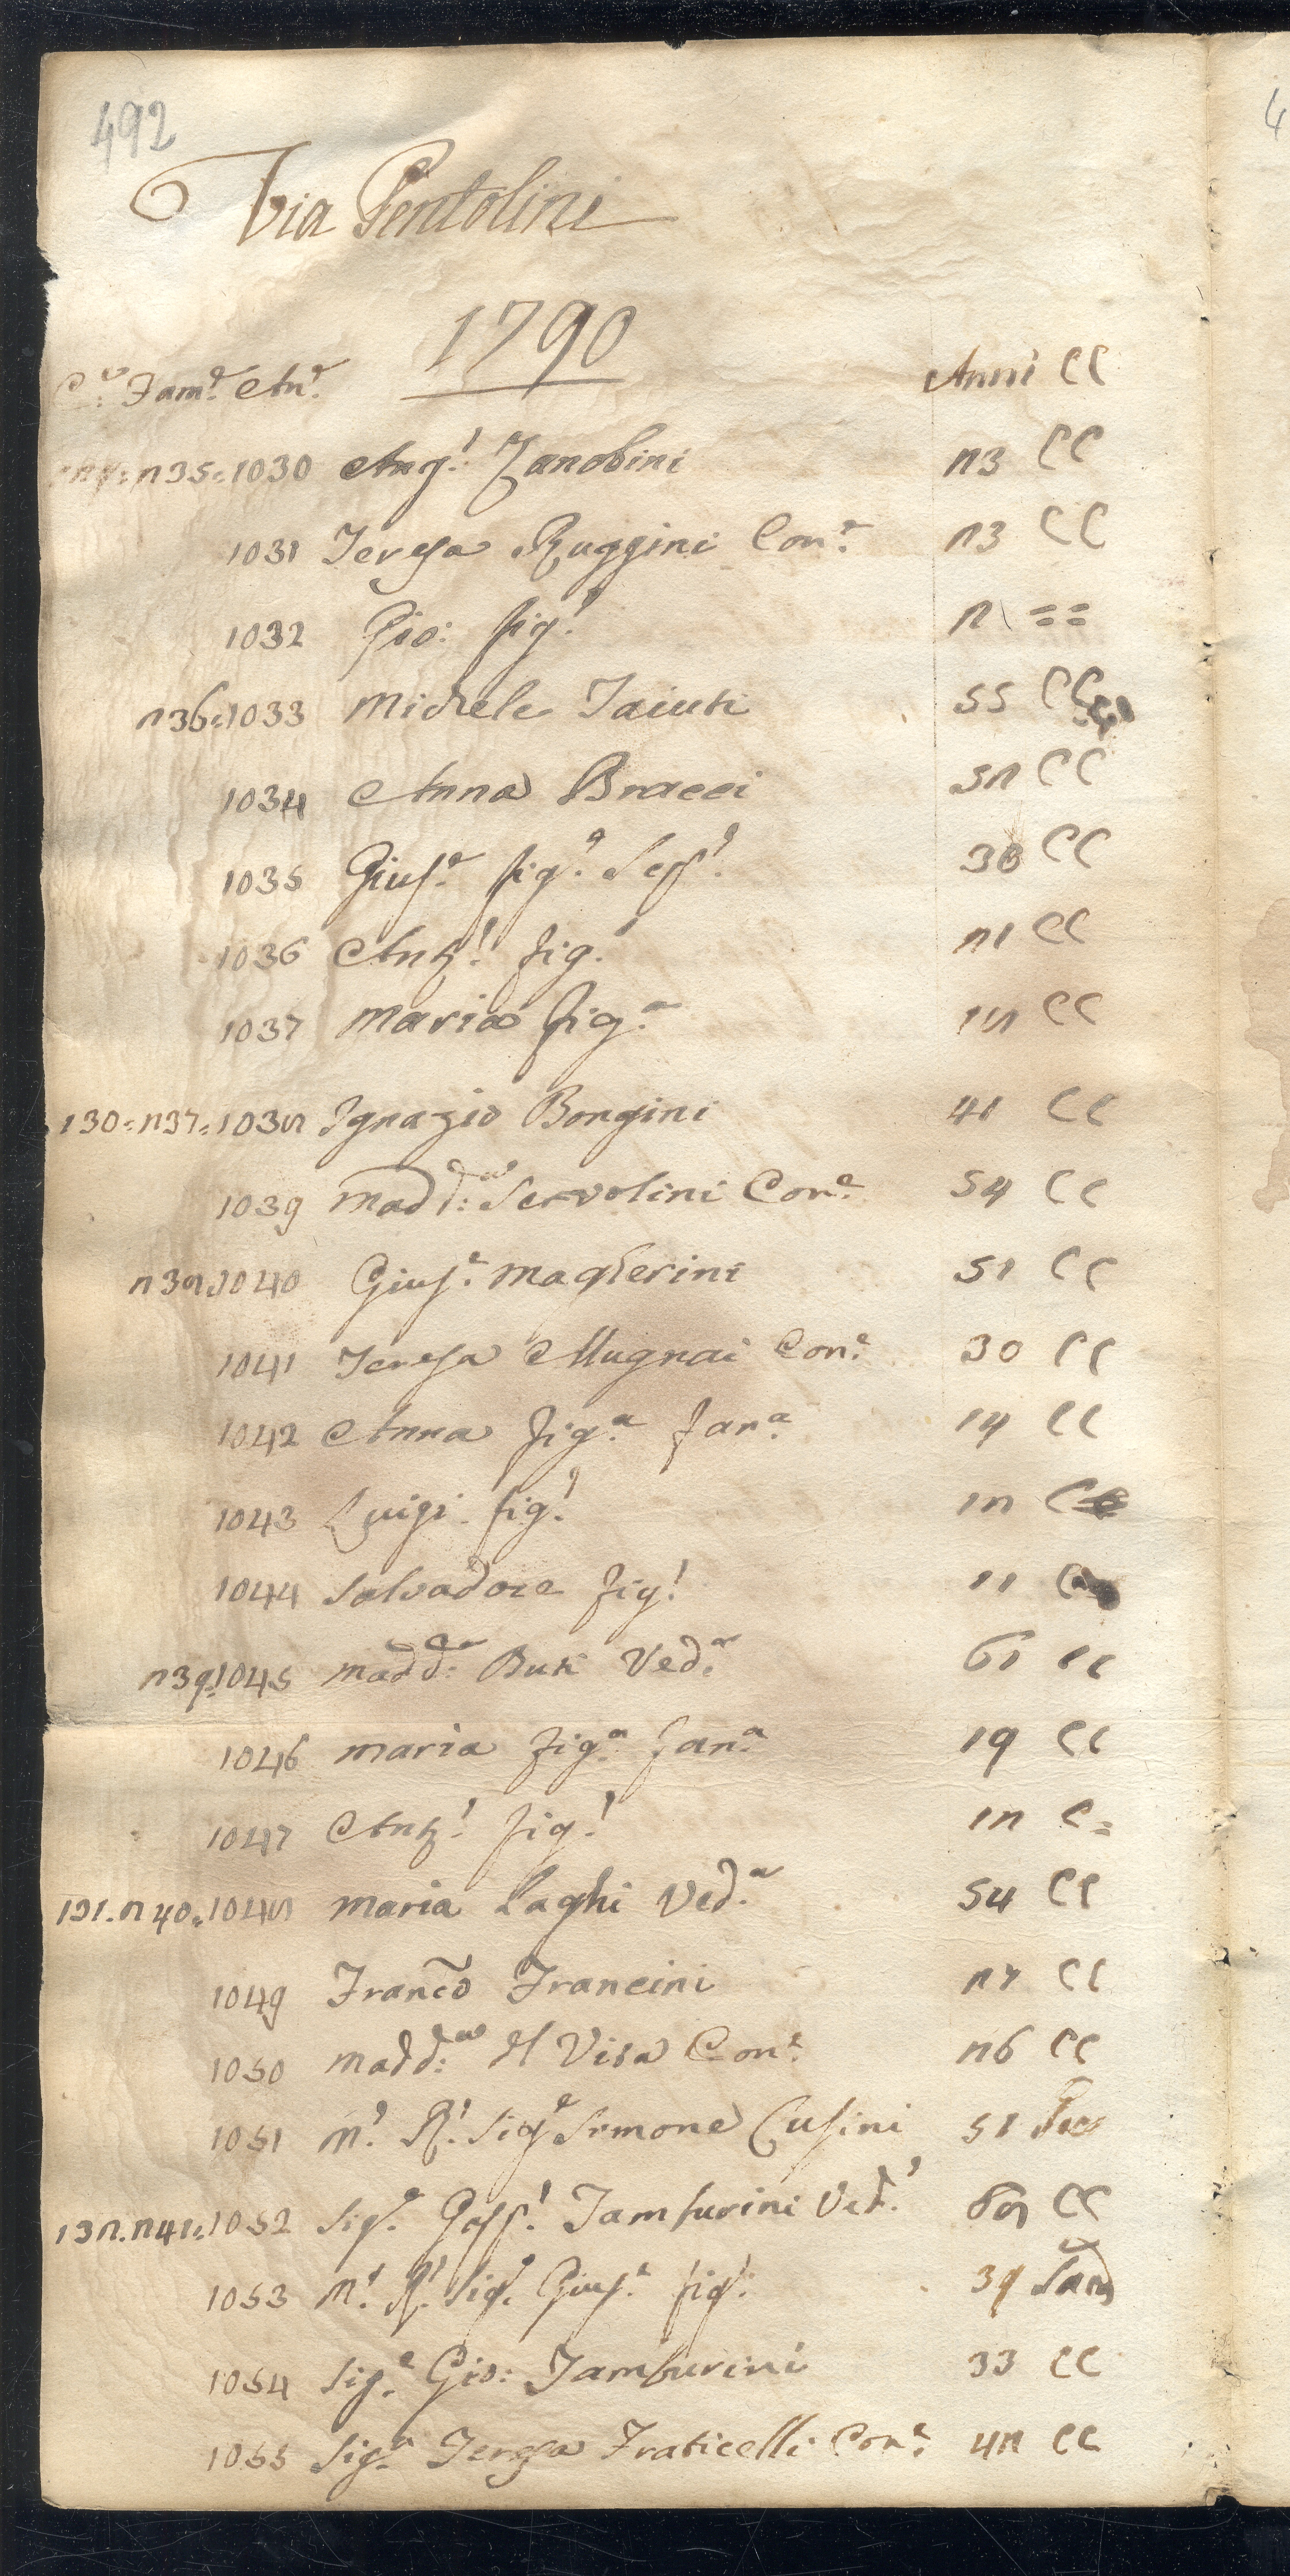 492
Via Pentolini
1790
C.e Fam.e An.e Anni CC
235:1030 Ang.l Zanobini 23 CC
1031 Teresa Ruggini Con.e 23 CC
1032 Gio: fig.l 2 = =
236:1033 Michele Taiuti 55 CC
1034 Anna Bracci 52 CC
1035 Gius.e fig.o Sep.o 30 CC
1036 Ant.o fig.o 21 CC
1037 Maria fig.a 18 CC
130:237:1038 Ignazio Bongini 41 CC
1039 Madd:a Servolini Con.e 54 CC
238:1040 Gius.e Magherini 51 CC
1041 Teresa Mugnai Con.e 30 CC
1042 Anna fig.a fan.a 14 CC
1043 Luigi fig.o 12 C
1044 Salvadore fig.o 11 C
239:1045 Madd:a Buti Ved.a 61 CC
1046 Maria fig.a fan.a 19 CC
1047 Ant.o fig.o 12 C =
131.240:1048 Maria Laghi Ved.a 54 CC
1049 Franc͂o Francini 27 CC
1050 Madd:a del Visa Con.e 26 CC
1051 M.o R.o Sig.e Simone Cusini 51 Sac
132.241:1052 Sig.e Gasp.o Tamburini Ved.o 68 CC
1053 M.o R.o Sig.e Gius.e fig.o 39 Sacd
1054 Sig.e Gio: Tamburini 33 CC
1055 Sig.a Teresa Fraticelli Con.e 42 CC